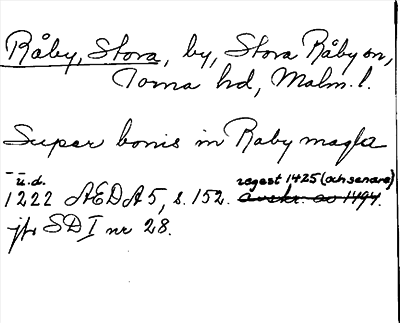 Råby, Stora, by, Stora Råby sn,
Torna hd, Malm. l.
Super bonis in Raby magla
u.d.
1222 AEDA 5, s. 152. regest 1425 (och senare)
avskr. av 1494.
jfr SD I nr 28.